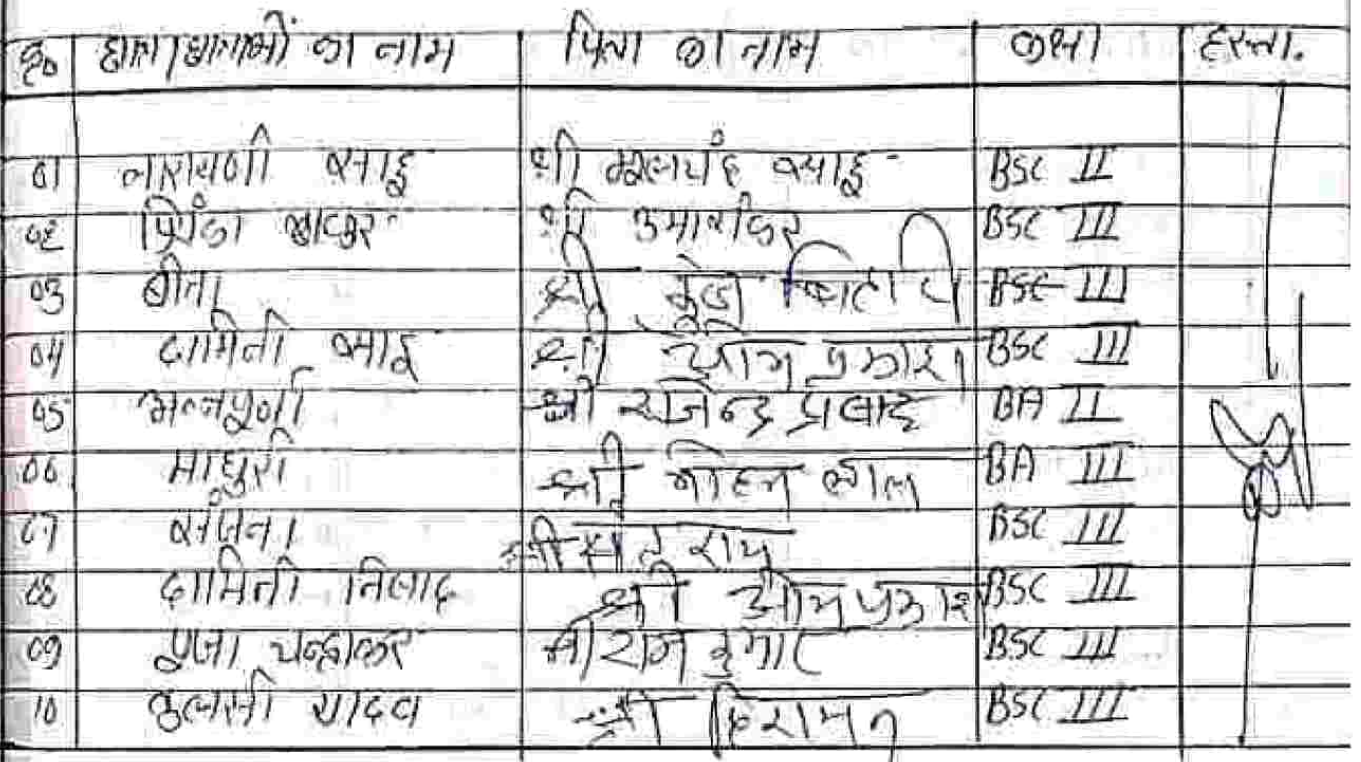 क्र० छात्र/छात्राओं का नाम पिता का नाम कक्षा हस्ता.
01 नारायणी साहू श्री मूलचंद साहू BSC II
02 प्रियंका ठाकुर श्री उमाशंकर BSC III
03 बीना श्री BSC III
04 दामिनी साहू श्री ओम प्रकाश BSC III
05 अन्नपूर्णा श्री राजेन्द्र प्रसाद BA II
06 माधुरी श्री मोहन लाल BA III
07 संजना श्री संत राय BSC III
08 दामिनी निषाद श्री ओमप्रकाश BSC III
09 पूजा चन्द्राकर श्री राम कुमार BSC III
10 तुलसी यादव श्री हिरामन BSC III